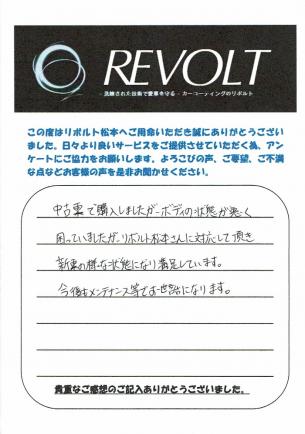 REVOLT
- 洗練された技術で愛車を守る - カーコーティングのリボルト
この度はリボルト松本へご用命いただき誠にありがとうござい
ました。日々より良いサービスをご提供させていただく為、アン
ケートにご協力をお願いします。よろこびの声、ご要望、ご不満
な点などお客様の声を是非お聞かせください。
中古車で購入しましたが、ボディの状態が悪く
困っていましたが、リボルト松本さんに対応して頂き
新車の様な状態になり満足しています。
今後もメンテナンス等でお世話になります。
貴重なご感想のご記入ありがとうございました。